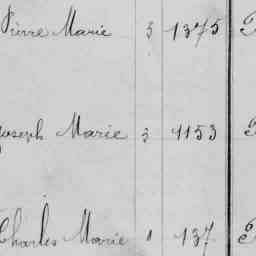 Pierre Marie 3 1375
Joseph Marie 3 1153
Charles Marie 1 137